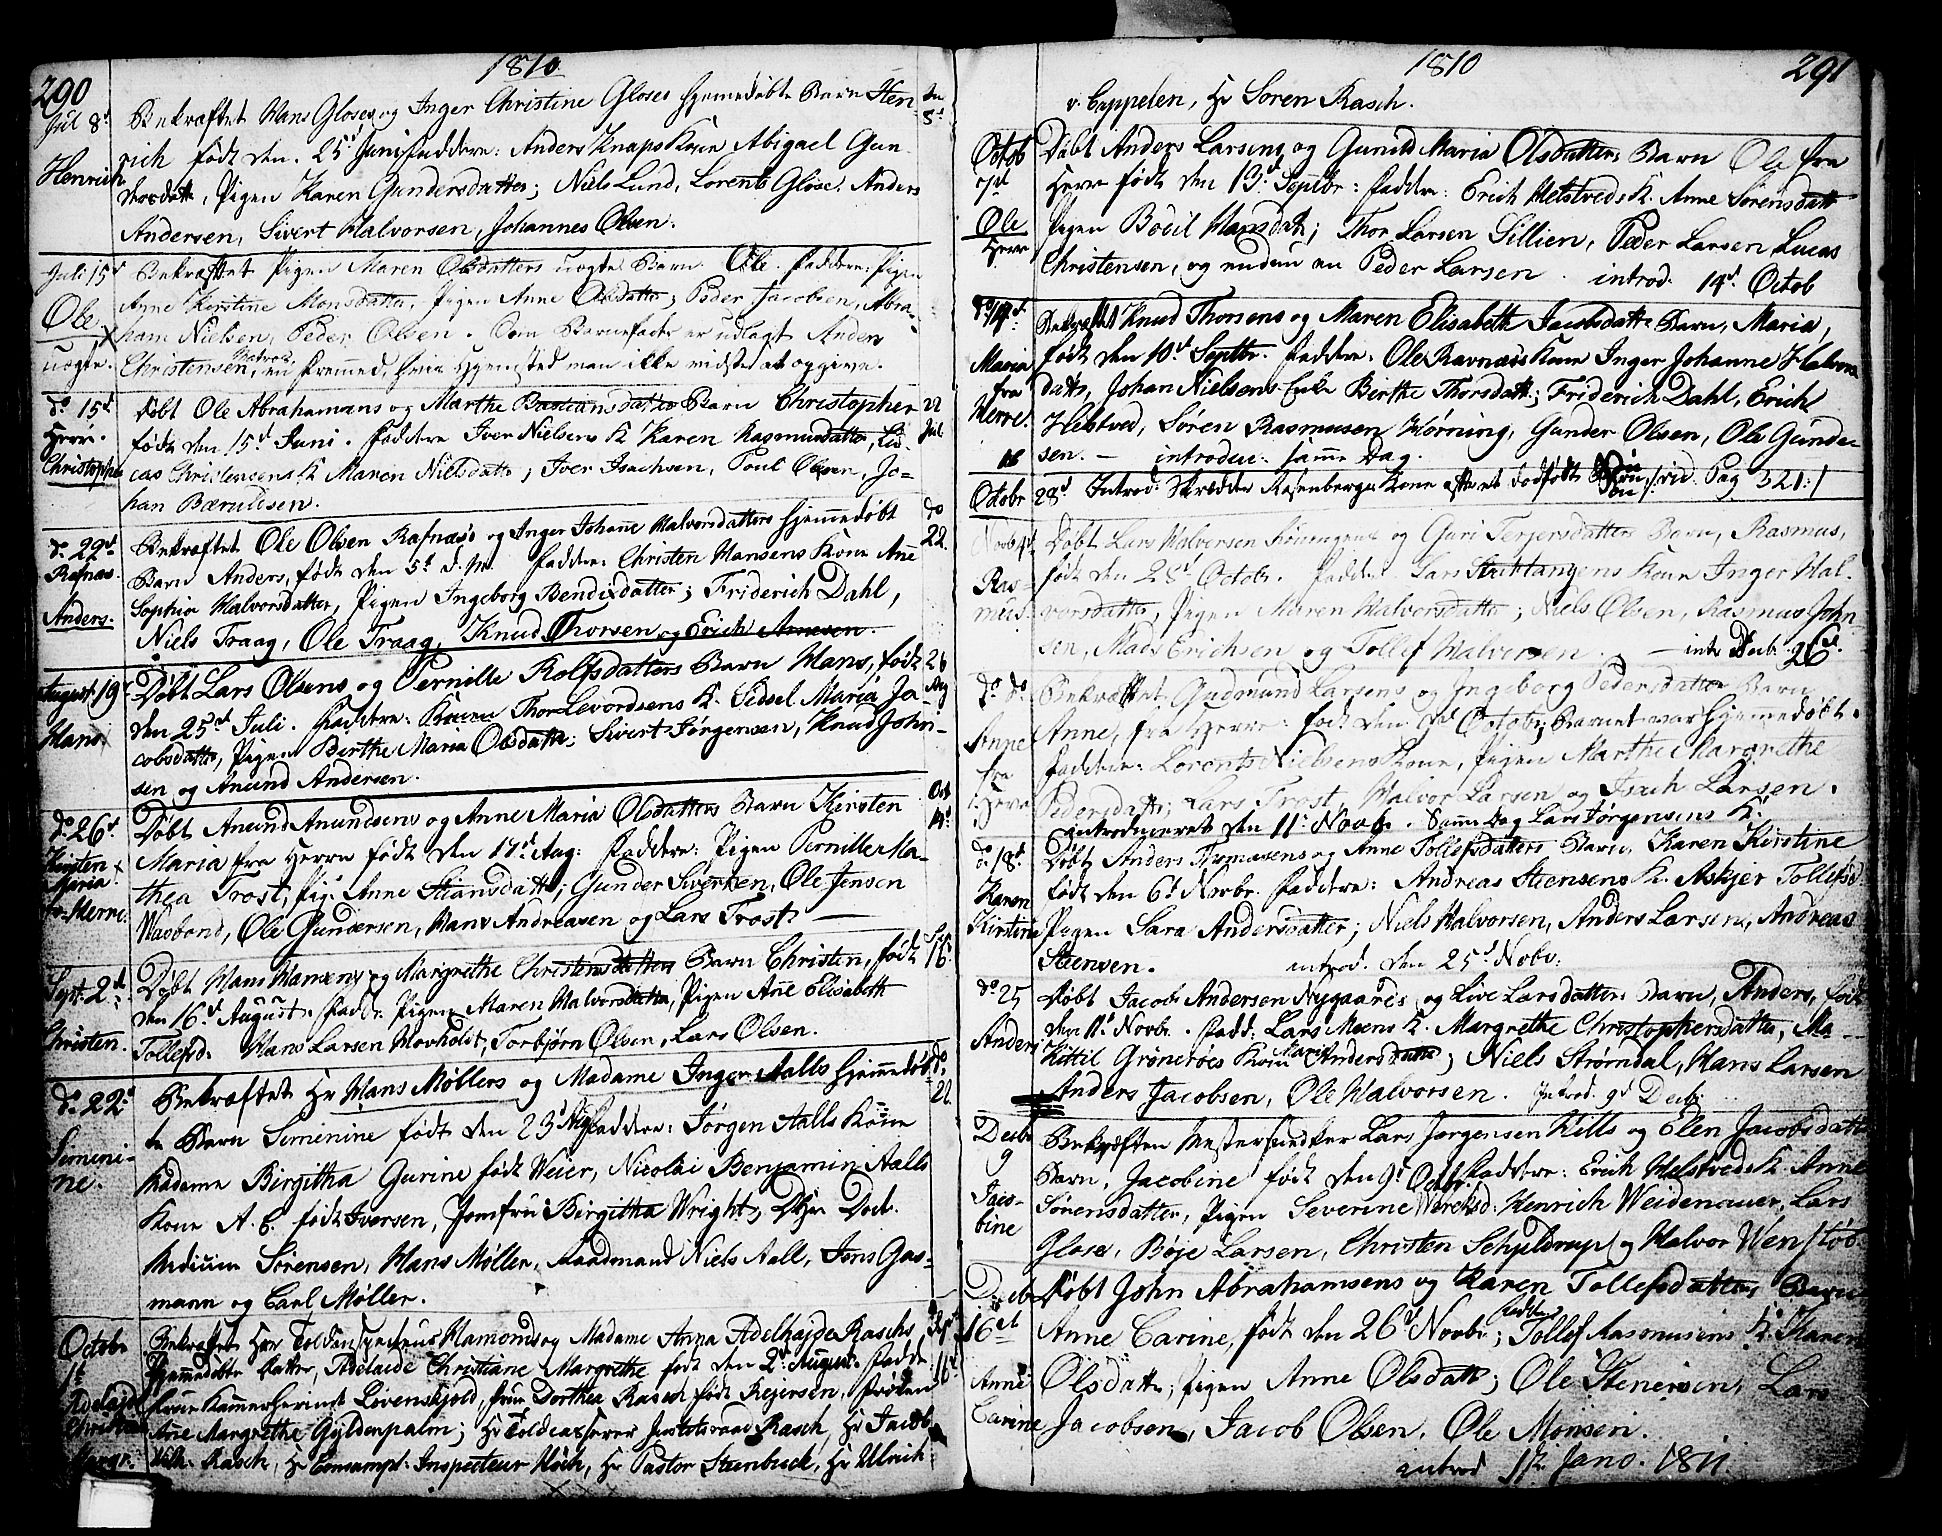 290
1810
Jul 8d
Henrich
Bekræftet Hans Gloses og Inger Christine Gloses hjemmedøbte Barn Hen-
rich født den 25d Juni Faddere: Anders Knaps Kone Abigael Gun-
dersdatt, Pigen Karen Gundersdatter; Niels Lund, Lorents Glose, Anders
Andersen, Sivert Halvorsen, Johannes Olsen.
Juli 15d
Ole
uægte
Bekræftet Pigen Maren Olsdatters uægte Barn Ole. Faddere: Pigen
Anne Kirstine Monsdatter, Pigen Anne Olsdatter; Peder Jacobsen, Abra-
ham Nielsen, Peder Olsen. Som Barnefader er udlagt Anders
Christensen, en fremmed, hvis Hjemsted man ikke vidste at opgive.
do 15d
Herre
Christopher
Døbt Ole Abrahamsens og Marthe Bastiansdatters Barn Christopher
født den 15d Juni. Faddere Iver Nielsens K Karen Rasmusdatter, Lu-
cas Christensens K Maren Nielsdatter; Iver Isachsen, Poul Olsen, Jo-
han Berntsen.
22
Jul
do 22d
Rafnæs
Anders
Bekræftet Ole Olsen Rafnæs og Inger Johanne Halvorsdatters hjemmedøbt
Barn Anders, født den 5d d.M. Faddere: Christen Hansens Kone Ane
Sophia Halvorsdatter, Pigen Ingeborg Bendixdatter; Friderich Dahl,
Niels Traag, Ole Traag, Knud Thorsen og Erich Arnesen.
do
22
August 19
Hans
Døbt Lars Olsens og Pernille Rolfsdatters Barn Hans, født
den 25d Juli. Faddere: Konen Thor Levordsens K. Sidsel Maria Ja-
cobsdatter, Pigen Berthe Maria Olsdatter; Sivert Jørgensen, Knud John-
sen og Anund Andersen.
26
Aug
do 26d
Kirsten
Maria
fr. Herre
Døbt Anund Anundsens og Anne Maria Olsdatters Barn Kirsten
Maria fra Herre født den 17d Aug: Faddere: Pigen Pernille Ma-
thea Trost, Pig. Anne Stiansdatt; Gunder Sivertsen, Ole Jensen
Waabond, Ole Gundersen, Hans Andreasen og Lars Trost.
Octb
14d
Sept: 2d
Christen
Døbt Hans Hansens og Margrethe Christensdatters Barn Christen, født
den 16d August. Fadde Pigen Maren Halvorsdatter, Pigen Ane Elisabeth
Tollefsd. Hans Larsen Hovholt, Torbjørn Olsen, Lars Olsen.
16
do 22d
Simeni-
ne.
Bekræftet Hr Hans Møllers og Madame Inger Aalls hjemmedøb-
te Barn Simenine født den 23d Aug Faddere: Jørgen Aalls Kone
Madame Birgitha Gurine født Weier, Nicolai Benjamin Aalls
Kone A. E. født Iversen, Jomfru Birgitha Wright, Doct.
Medicin Sørensen, Hans Møller, Raadmand Niels Aall, Jens Gas-
mann og Carl Møller.
do
22
Octobr
1d
Adelajde
Christiane
Margr.
Bekræftet Herr Toldinspecteur Hamonds og Madame Anna Adelhajde Raschs
hjemmedøbte Datter, Adelaide Christiane Margrethe født den 2d August. Fadde
Frue Kammerherinde Løvenskjold, Frue Dorthea Rasch født Rejersen, Frøken
Ane Margrethe Gyldenpalm; Hr Toldcasserer Justitsraad Rasch, Hr Jacob
Wilh. Rasch, Hr Inspecteur Høch, Hr Pastor Steenbuck, Hr Ulrich
Sept
16d
1810
291
v. Cappelen, Hr Søren Rasch.
Octob
7d
Ole
Herre
Døbt Anders Larsens og Gunild Maria Olsdatters Barn Ole fra
Herre født den 13d Septbr: Faddere: Erich Helstveds K. Anne Sørensdatt
Pigen Bodil Hansdatt; Thor Larsen Sillien, Peder Larsen Lucas
Christensen, og endnu en Peder Larsen. introd. 14d Octob
do 14d
Maria
fra
Herre.
Bekræftet Knud Thorsens og Maren Elisabeth Jacobsdatte Barn, Maria,
født den 10d Septbr. Faddere: Ole Ravnæs Kone Inger Johanne Halvors
datt, Johan Nielsens Enke Berthe Thorsdatt; Friderich Dahl, Erich
Helstved, Søren Rasmusen Hørning, Gunder Olsen, Ole Gunder
sen. - introden: samme Dag.
Octobr
28d Introd: Skrædder Rosenbergs Kone efter et dødfødt Barn /: vid. Pag 321 :/
Novb 4d
Ras-
mus.
Døbt Lars Halversen og Guri Terjersdatters Barn, Rasmus,
født den 28d Octobr. Faddere Lars Strktangens Kone Inger Hal-
vorsdatter, Pigen Maren Halvorsdatter; Niels Olsen, Rasmus John-
sen, Mads Erichsen og Tollef Halversen. - intr Decb. 26d
do do
Anne
fra
Herre
Bekræftet Gudmund Larsens og Ingeborg Pedersdatter Barn
Anne, fra Herre: født den Octobr; Barnet var hjemmedøbt.
Faddere: Lorents Nielsens Kone, Pigen Marthe Margrethe
Pedersdatt; Lars Trost, Halvor Larsen og Isach Larsen.
introduceret den 11d Novb. Samme Dag Lars Jørgensens K.
do 18d
Karen
Kirstine
Døbt Anders Thomasens og Anne Tollefsdatters Barn, Karen Kirstine
født den 6d Novbr. Faddere: Andreas Steensens K. Askjer Tollefsd
Pigen Sara Andersdatter; Niels Halvorsen, Anders Larsen, Andreas
Steensen. introd. den 25d Novbr.
do 25
Anders
Døbt Jacob Andersen Nygaards og Live Larsdatters Barn, Anders, født
den 11d Novbr. Fadd. Lars Moens K. Margrethe Christophersdatter,
Kittil Grønerøes Kone Andersdatte; Niels Strømdal, Hans Larsen
Anders Jacobsen, Ole Halvorsen. Introd. 9d Decb:
Decbr
9
Jaco-
bine
Bekræften Mestersvend Lars Jørgensen Kitts og Elen Jacobsdatte
Barn, Jacobine født den 9d Octbr. Faddere: Erich Helstveds K. Anne
Sørensdatter, Pigen Severine Henrich Weidenauer, Lars
Glose, Bøje Larsen, Christen Schjeldrup og Halvor Wenstøb.
Decbr
16d
Anne
Carine
Døbt John Abrahamsens og Karen Tollefsdatters Barn
Anne Carine, født den 26d Novbr; Fadder Tollef Rasmusens K. Karen
Olsdatt, Pigen Anne Olsdatt; Ole Steensen, Lars
Jacobsen, Jacob Olsen, Ole Monsen.
introd 1ste Jano. 1811.